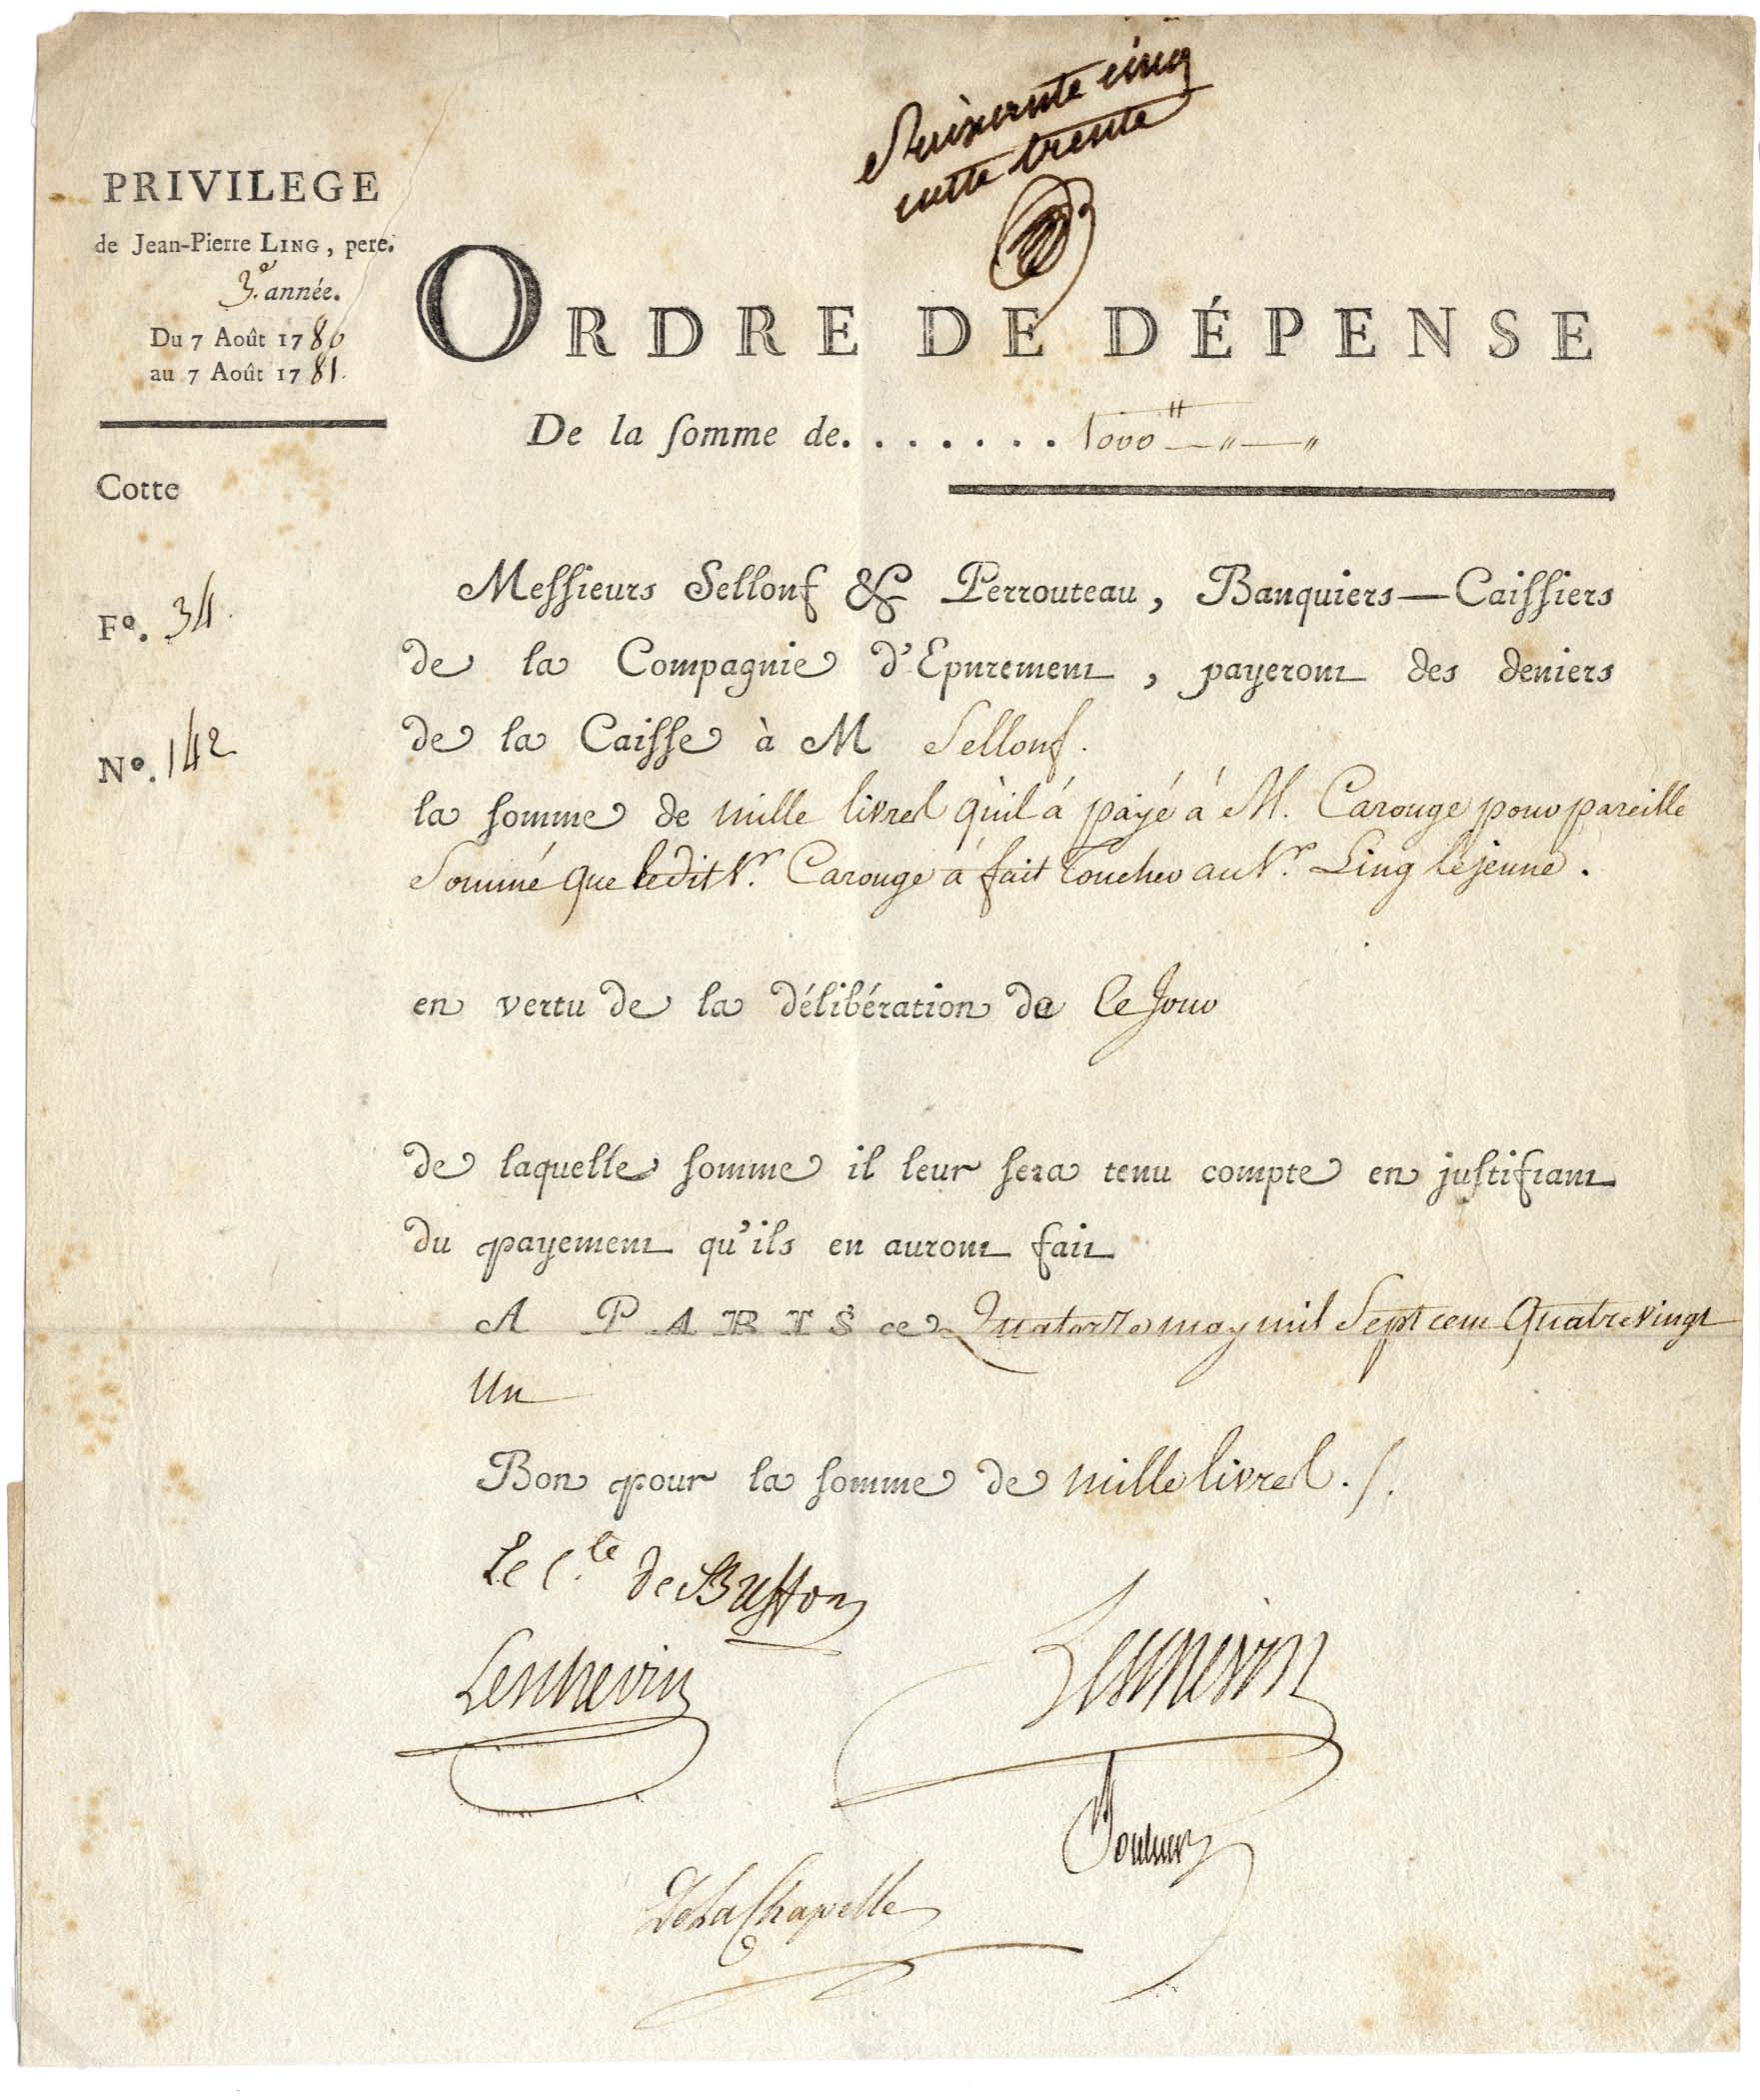 Soixante cinq
cotte trente
PRIVILEGE
de Jean-Pierre LING, pere.
3.e année.
Du 7 Août 1780
au 7 Août 1781.
ORDRE DE DÉPENSE
De la ſomme de. . . . . . . 1000 ₶ — " — "
Cotte
Fo. 34.
No. 142
Meſſieurs Sellonf & Perrouteau, Banquiers—Caiſſiers
de la Compagnie d'Epurement, payeront des deniers
de la Caiſſe à M Sellonf.
la ſomme de mille livres qu'il á payé á M. Carouge pour pareille
Somme que ledit Sr. Carouge á fait toucher au Sr. Ling le jeune.
en vertu de la délibération de Ce Jour
de laquelle ſomme il leur ſera tenu compte en juſtifiant
du payement qu'ils en auront fait
A PARIS ce Quatorze may mil Sept cent Quatre vingt
Un
Bon pour la ſomme de mille livres ./.
Le C.te de Buffon
Lenchevin
DeLaChapelle